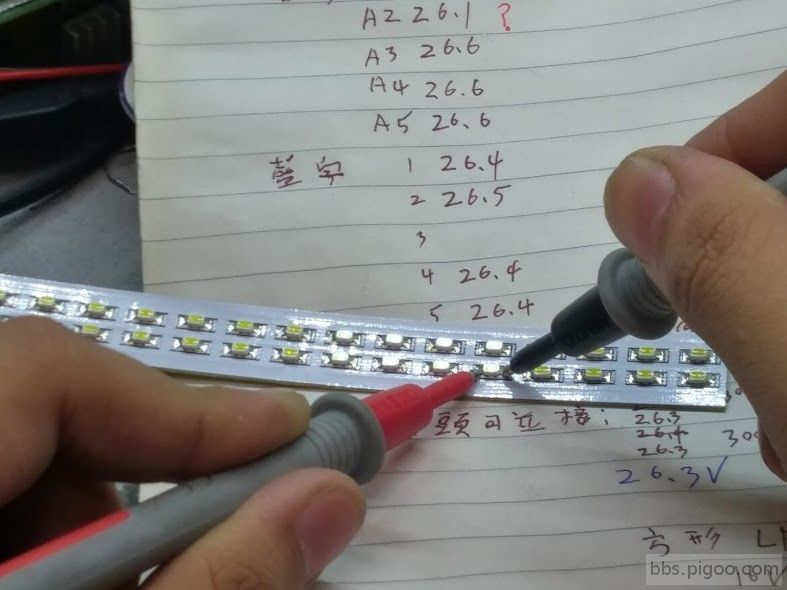 A2 26.1 ?
A3 26.6
A4 26.6
A5 26.6
1 26.4
2 26.5
3
4 26.4
5 26.4
頭可並接：26.3
26.4
26.3
26.3V
bbs.pigoo.com